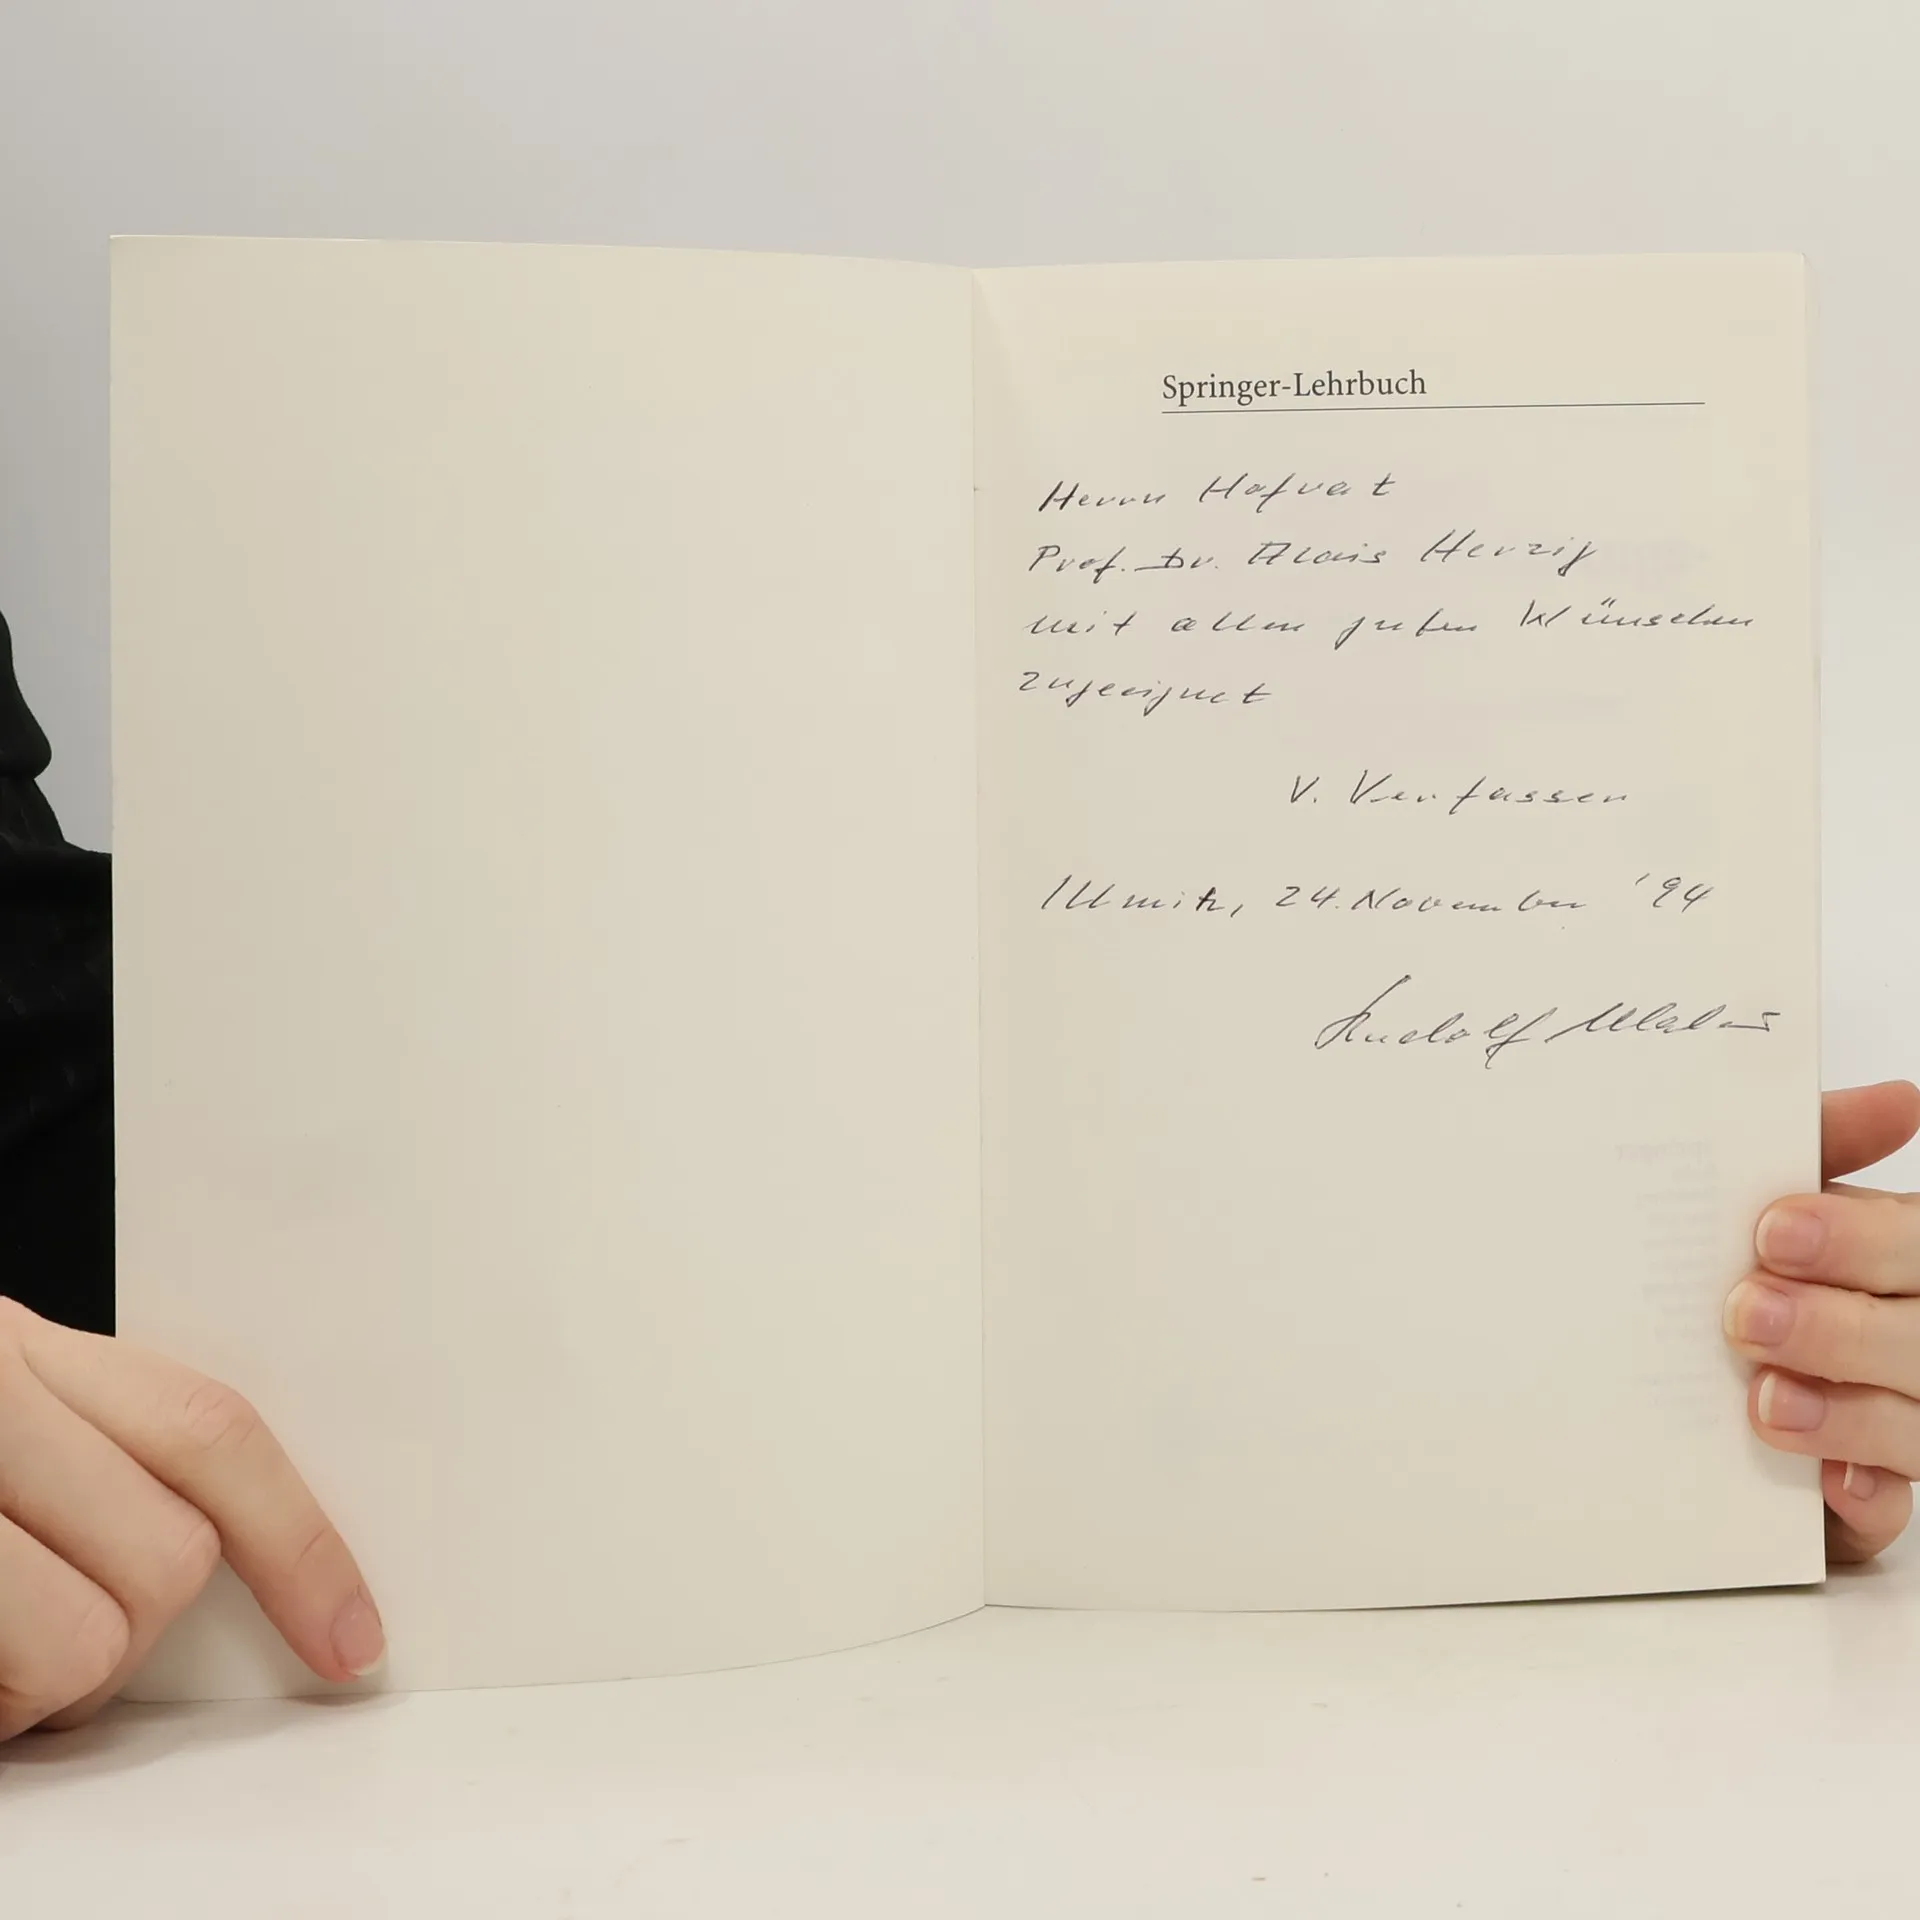 Springer-Lehrbuch
Herrn Hofrat
Prof. Dr. Alois Herzig
mit allen guten Wünschen
zugeeignet
v. Verfasser
Illmitz, 24. November '94
Rudolf